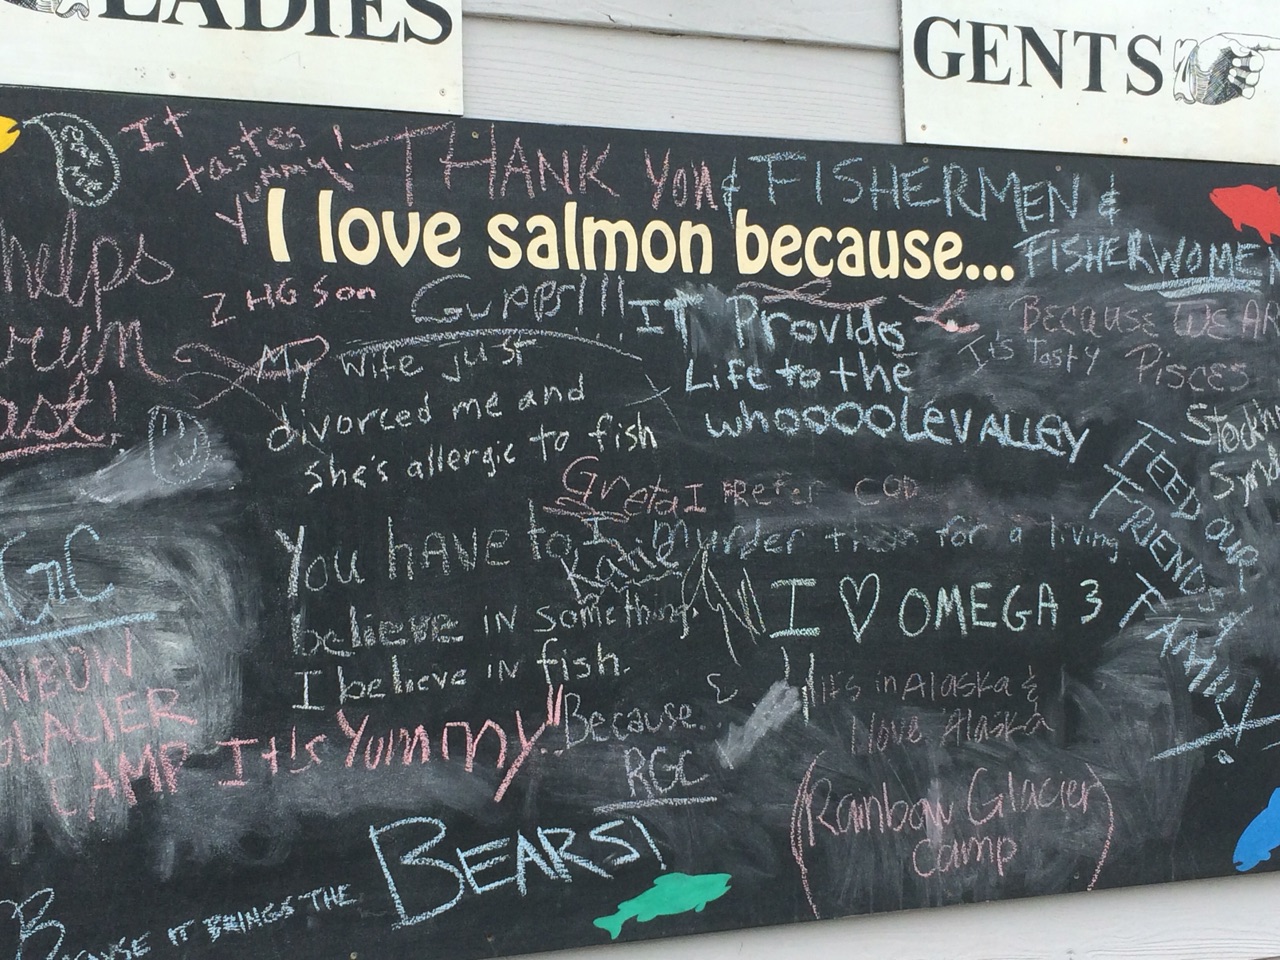 LADIES
GENTS
It
tastes
yummy!
THANK YOU & FISHERMEN &
FISHERWOMEN
I love salmon because...
helps
run
ast!
Guppy!!!
IT Provides
Life to the
whooooLEVALLEY
Because WE AR
Pisces
It's Tasty
My wife just
divorced me and
she's allergic to fish
Stockh
Greta I prefer COD
I Murder them for a living
FEED OUR
FRIENDS &
FAMILY
You HAVE to
believe IN something,
I believe IN fish.
I ♡ OMEGA 3
GC
NBOW
GLACIER
CAMP
It's Yummy!!
Because
RGC
& It's in Alaska &
I love Alaska
(Rainbow Glacier
Camp)
BECAUSE IT BRINGS THE
BEARS!